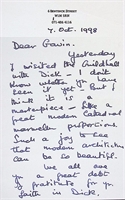 7. Oct. 1998
Dear Gavin.
Yesterday
I visited the Guildhall
with Dick - I don't
know whether you have
seen it yet? But I
think it is a
masterpiece - like a
great modern Catedral
marvellous proportions.
Such a joy to see
that modern architecture
can be so beautiful.
We all owe
you a great debt
of gratitude for yr
faith in Dick.